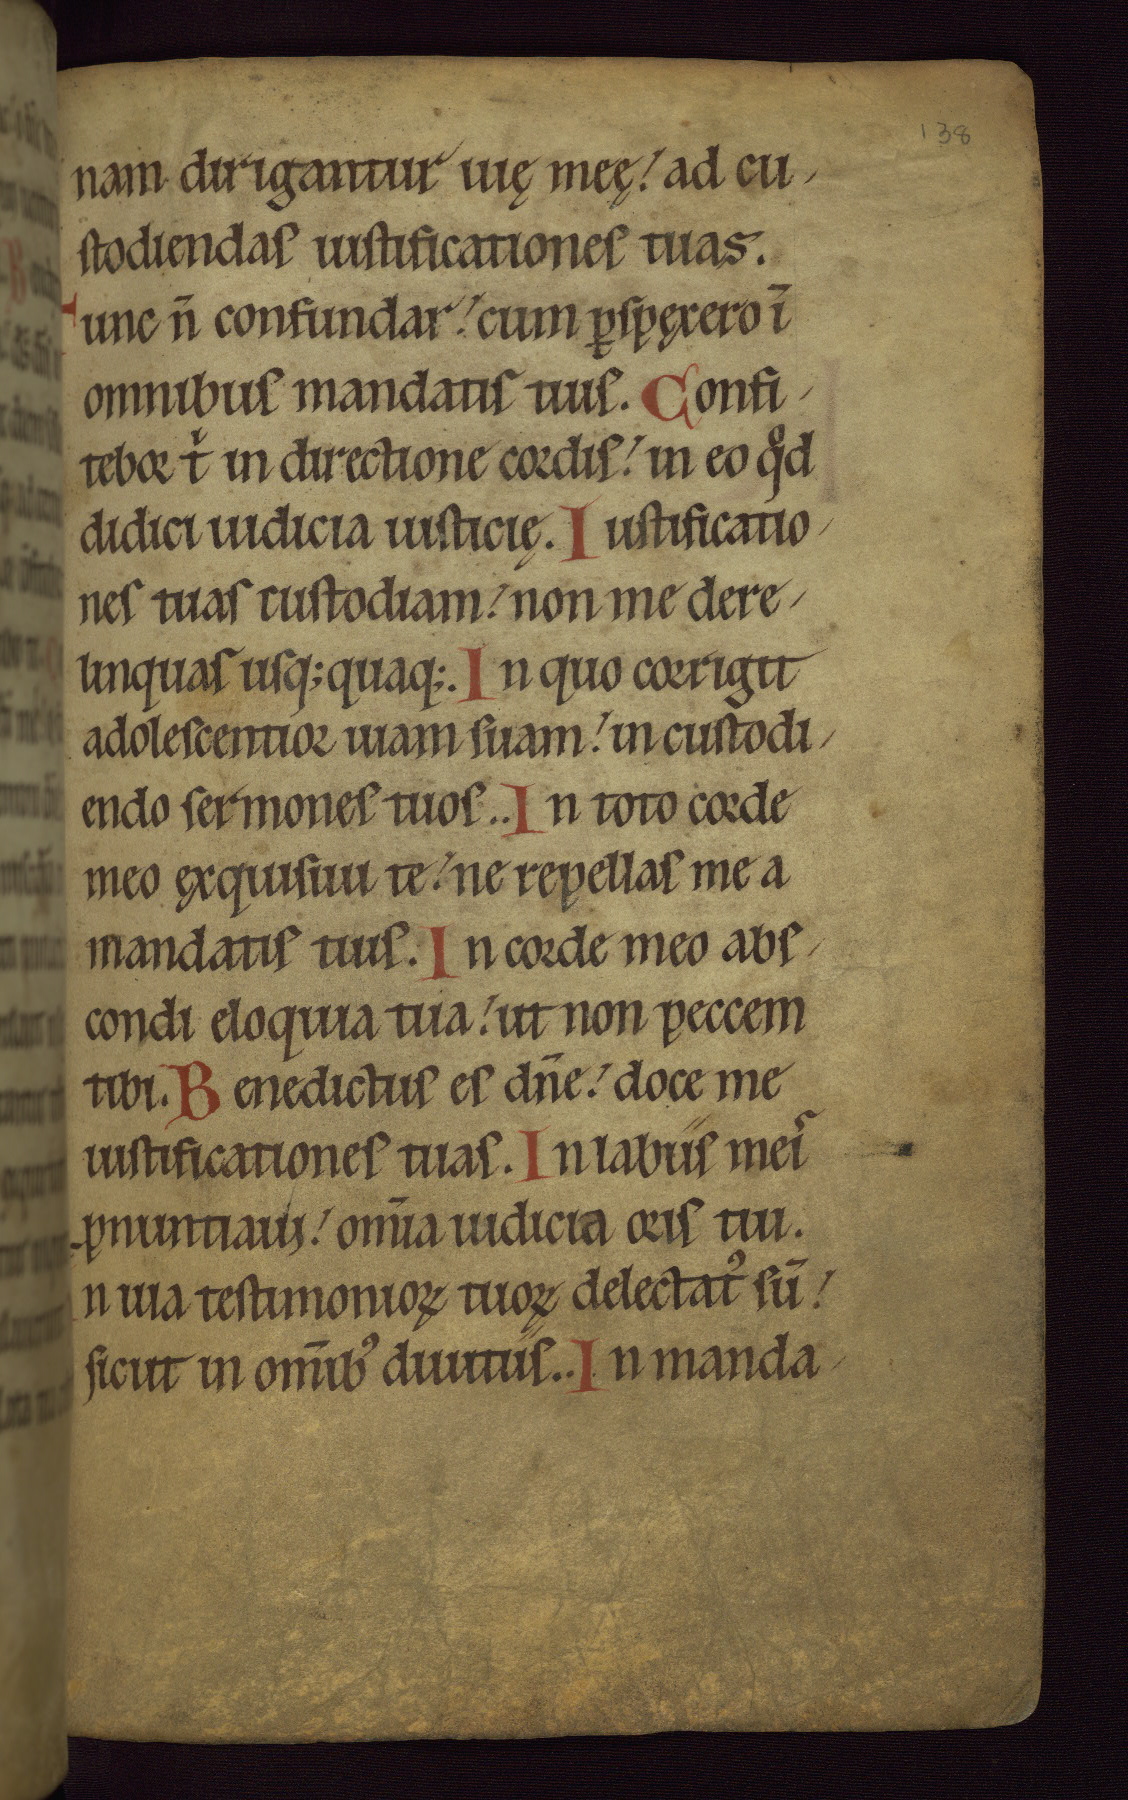 138
nam dirigantur uię meę! ad cu-
stodiendas iustificationes tuas.
Tunc n̄ confundar! cum ꝑspęxero ī
omnibus mandatis tuis. Confi-
tebor tͥ in directione cordis! in eo qͦd
didici iudicia iusticię. Iustificatio-
nes tuas custodiam! non me dere-
linquas usq; quaq;. In quo corrigit
adolescentior uiam suam! in custodi-
endo sermones tuos.. In toto corde
meo ęxquisiui te! ne repellas me a
mandatis tuis. In corde meo abs-
condi eloquia tua! ut non peccem
tibi. Benedictus es dn̄e! doce me
iustificationes tuas. In labiis meis
ꝓnuntiaui! om̄ia iudicia oris tui.
n uia testimonioꝝ tuoꝝ delectatꝰ sū!
sicut in om̄ibꝰ diuitiis.. In manda-